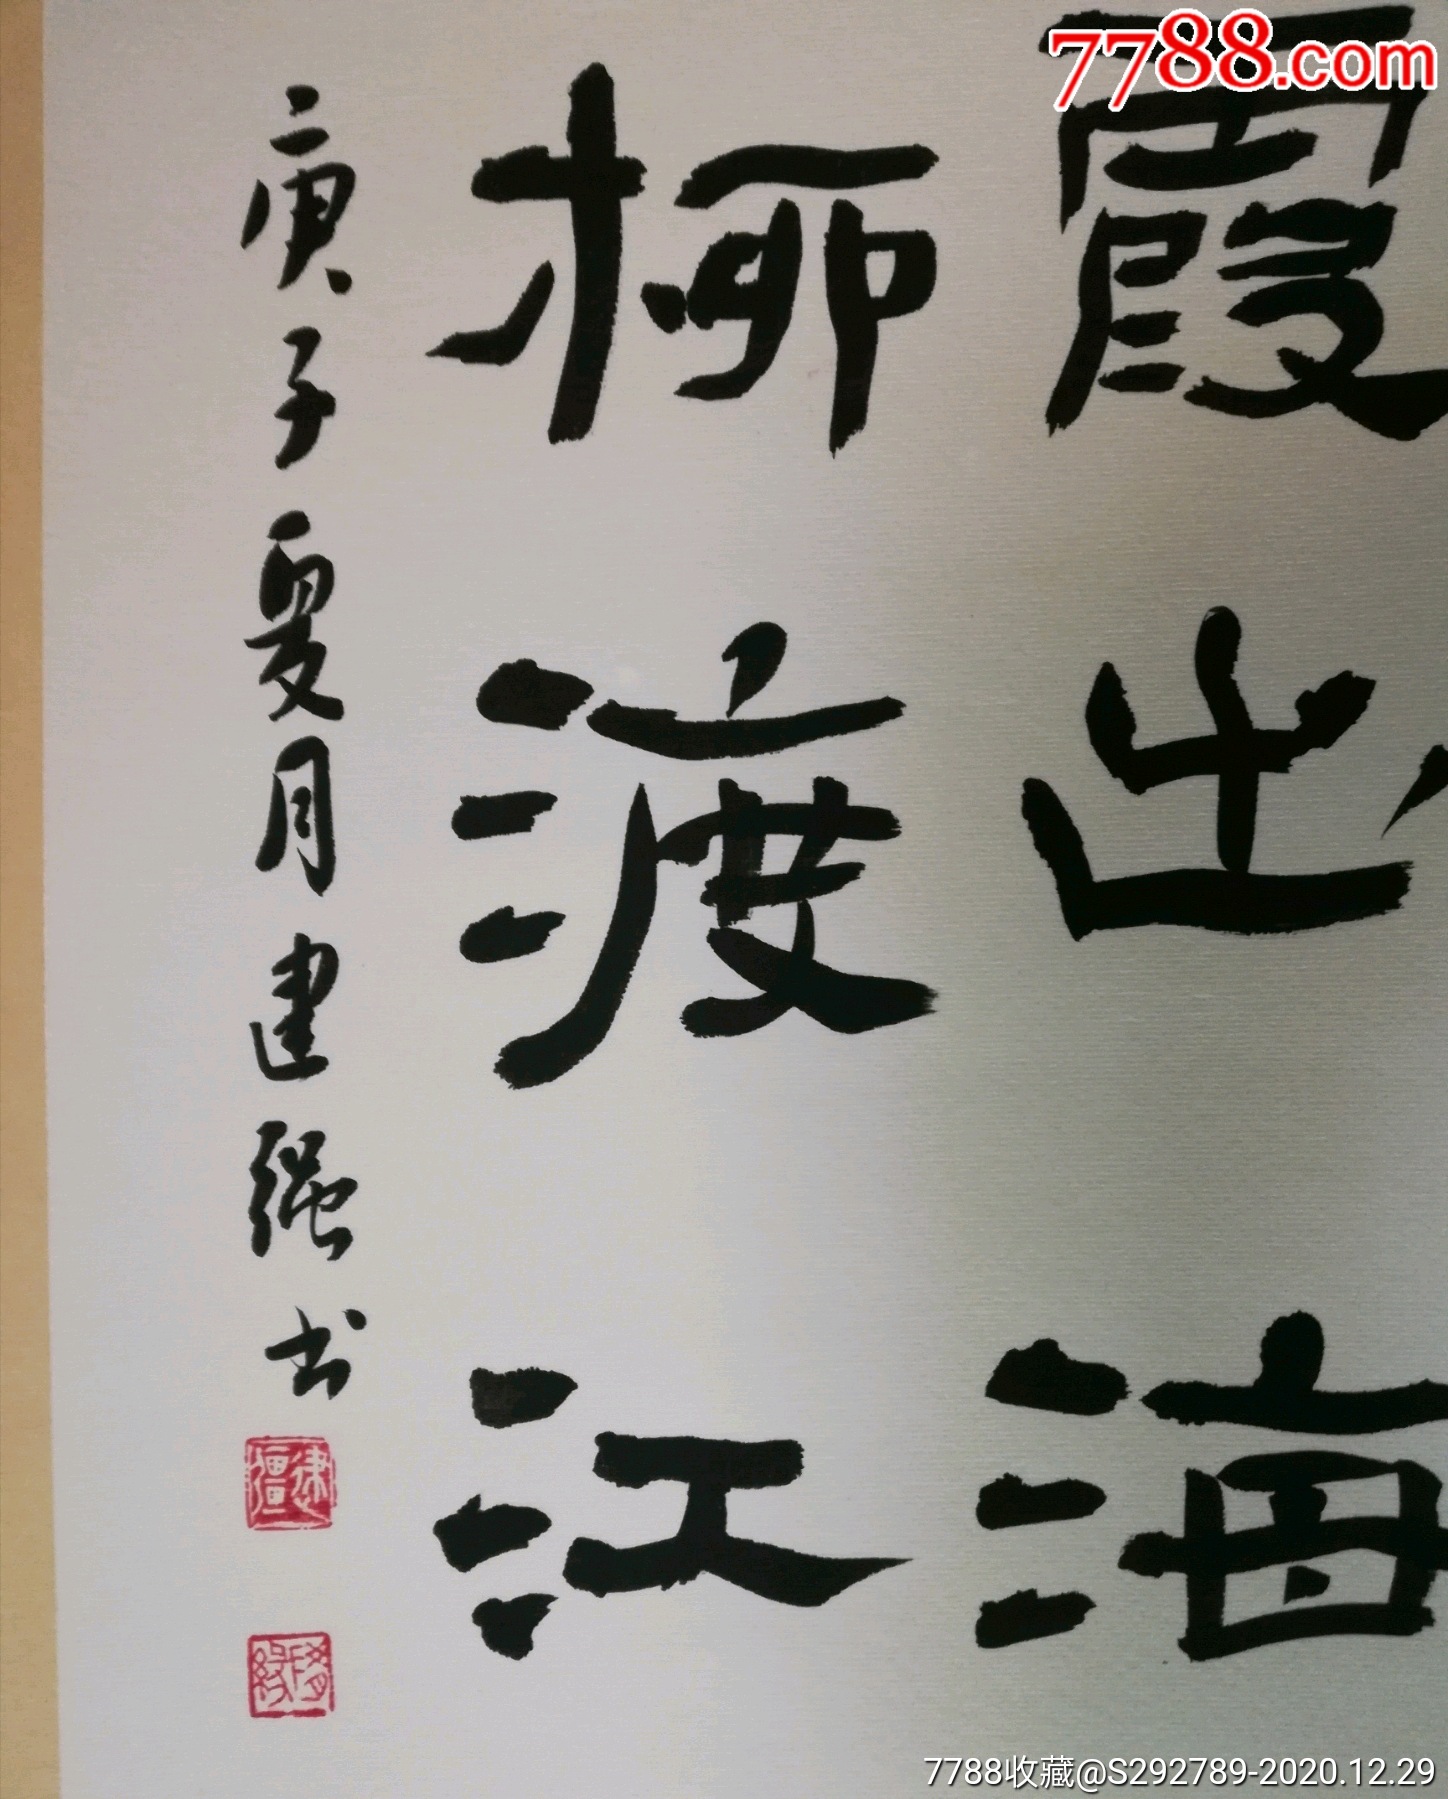 7788.com
霞出海
柳渡江
庚子夏月建强书
建强
7788收藏@S292789-2020.12.29